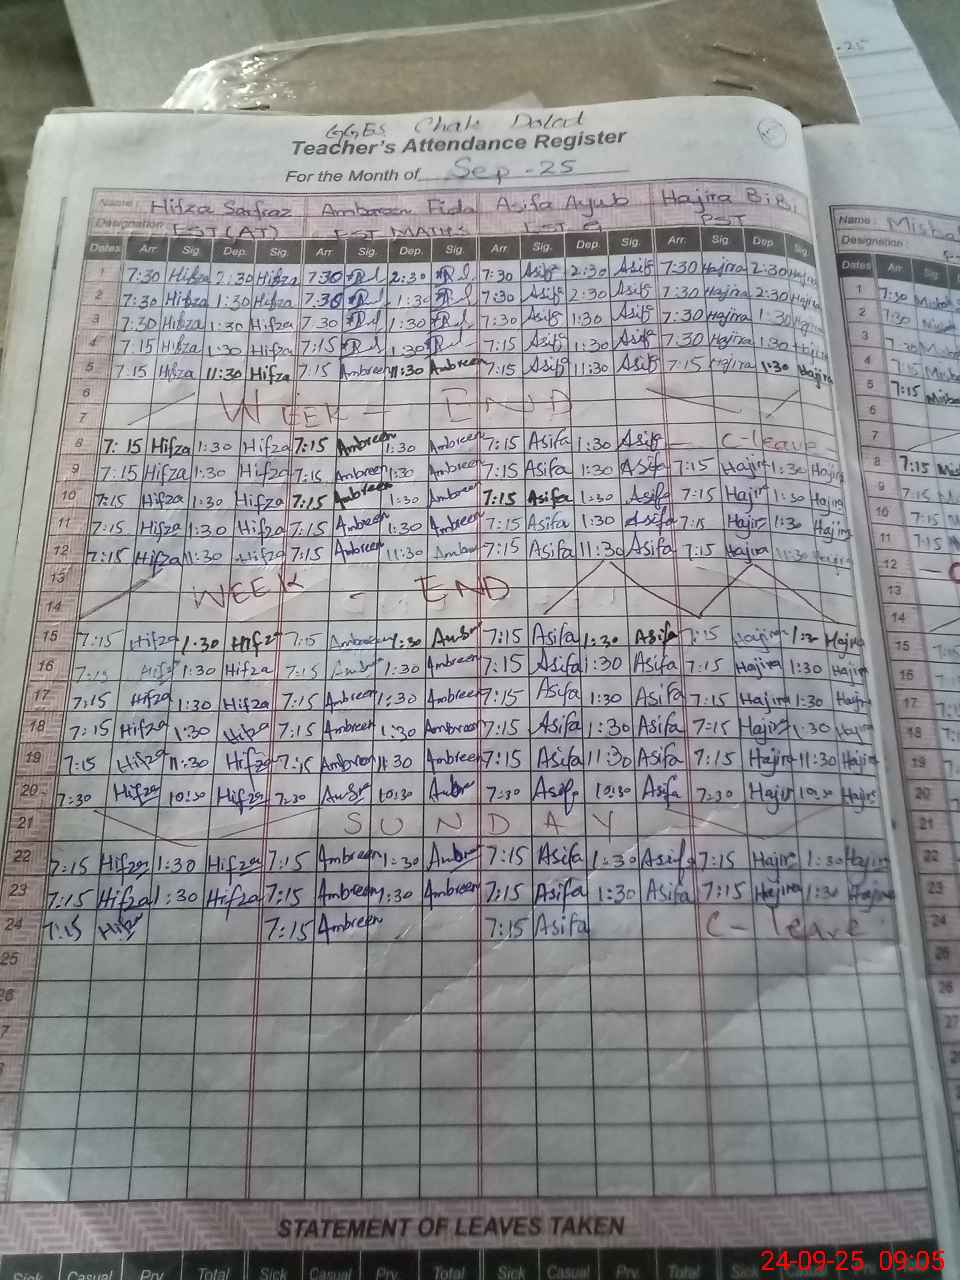 GGES Chak Dolat
Teacher's Attendance Register
For the Month of Sep - 25
Name: Hifza Sarfraz Ambreen Fida Asifa Ayub Hajira BiBi Name: Misba
Designation: EST (AT) EST MATHS EST PST Designation:
Dates Arr. Sig. Dep. Sig. Arr. Sig. Dep. Sig. Arr. Sig. Dep. Sig. Arr. Sig. Dep. Sig. Dates Arr. Sig.
1 7:30 Hifza 2:30 Hifza 7:30 2:30 7:30 Asifa 2:30 Asifa 7:30 Hajira 2:30 Hajira 1 7:30 Misba
2 7:30 Hifza 1:30 Hifza 7:30 1:30 7:30 Asifa 2:30 Asifa 7:30 Hajira 2:30 Hajira 2 7:30 Misba
3 7:30 Hifza 1:30 Hifza 7:30 1:30 7:30 Asifa 1:30 Asifa 7:30 Hajira 1:30 Hajira 3 Misba
4 7:15 Hifza 1:30 Hifza 7:15 1:30 7:15 Asifa 1:30 Asifa 7:30 Hajira 1:30 Hajira 4 7:15 Misba
5 7:15 Hifza 11:30 Hifza 7:15 Ambreen 11:30 Ambreen 7:15 Asifa 11:30 Asifa 7:15 Hajira 1:30 Hajira 5 7:15 Misba
6 WEEK - END 6
7 7
8 7:15 Hifza 1:30 Hifza 7:15 Ambreen 1:30 Ambreen 7:15 Asifa 1:30 Asifa C-leave 8 7:15 Mis
9 7:15 Hifza 1:30 Hifza 7:15 Ambreen 1:30 Ambreen 7:15 Asifa 1:30 Asifa 7:15 Hajira 1:30 Hajira 9 7:15
10 7:15 Hifza 1:30 Hifza 7:15 Ambreen 1:30 Ambreen 7:15 Asifa 1:30 Asifa 7:15 Hajira 1:30 Hajira 10 7:15
11 7:15 Hifza 1:30 Hifza 7:15 Ambreen 1:30 Ambreen 7:15 Asifa 1:30 Asifa 7:15 Hajira 1:30 Hajira 11 7:15
12 7:15 Hifza 11:30 Hifza 7:15 Ambreen 11:30 Ambreen 7:15 Asifa 11:30 Asifa 7:15 Hajira 11:30 Hajira 12
13 WEEK - END 13
14 14
15 7:15 Hifza 1:30 Hifza 7:15 Ambreen 1:30 7:15 Asifa 1:30 Asifa 7:15 Hajira 1:30 Hajira 15
16 7:15 Hifza 1:30 Hifza 7:15 1:30 Ambreen 7:15 Asifa 1:30 Asifa 7:15 Hajira 1:30 Hajira 16
17 7:15 Hifza 1:30 Hifza 7:15 Ambreen 1:30 Ambreen 7:15 Asifa 1:30 Asifa 7:15 Hajira 1:30 Hajira 17
18 7:15 Hifza 1:30 Hifza 7:15 Ambreen 1:30 Ambreen 7:15 Asifa 1:30 Asifa 7:15 Hajira 1:30 Hajira 18
19 7:15 Hifza 11:30 Hifza 7:15 Ambreen 11:30 Ambreen 7:15 Asifa 11:30 Asifa 7:15 Hajira 11:30 Hajira 19
20 7:30 Hifza 10:30 Hifza 7:30 10:30 7:30 Asifa 10:30 Asifa 7:30 Hajira 10:30 Hajira 20
21 SUNDAY 21
22 7:15 Hifza 1:30 Hifza 7:15 Ambreen 1:30 7:15 Asifa 1:30 Asifa 7:15 Hajira 1:30 Hajira 22
23 7:15 Hifza 1:30 Hifza 7:15 Ambreen 1:30 Ambreen 7:15 Asifa 1:30 Asifa 7:15 Hajira 1:30 Hajira 23
24 7:15 Hifza 7:15 Ambreen 7:15 Asifa C-leave 24
25 25
26 26
7 27
STATEMENT OF LEAVES TAKEN
Sick Casual Prv. Total Sick Casual Prv. Total Sick Casual
24-09-25 09:05